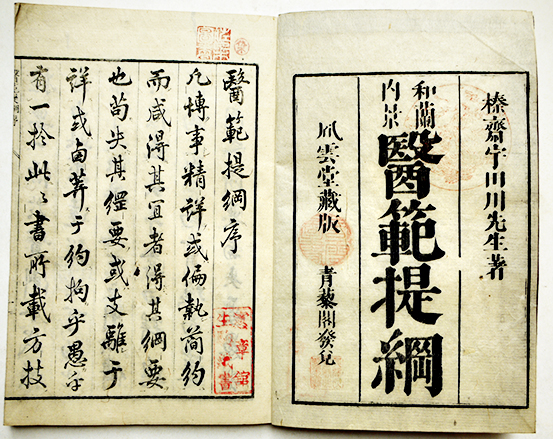 榛齋宇田川先生著
和蘭
内景
醫範提綱
風雲堂藏版 青藜閣發兌
醫範提綱序
凡博事精詳或偏執簡約
而咸得其冝者得其綱要
也苟失其綱要或支離于
詳或鹵莽于約拘乎愚乎
有一於此〻書所載方技